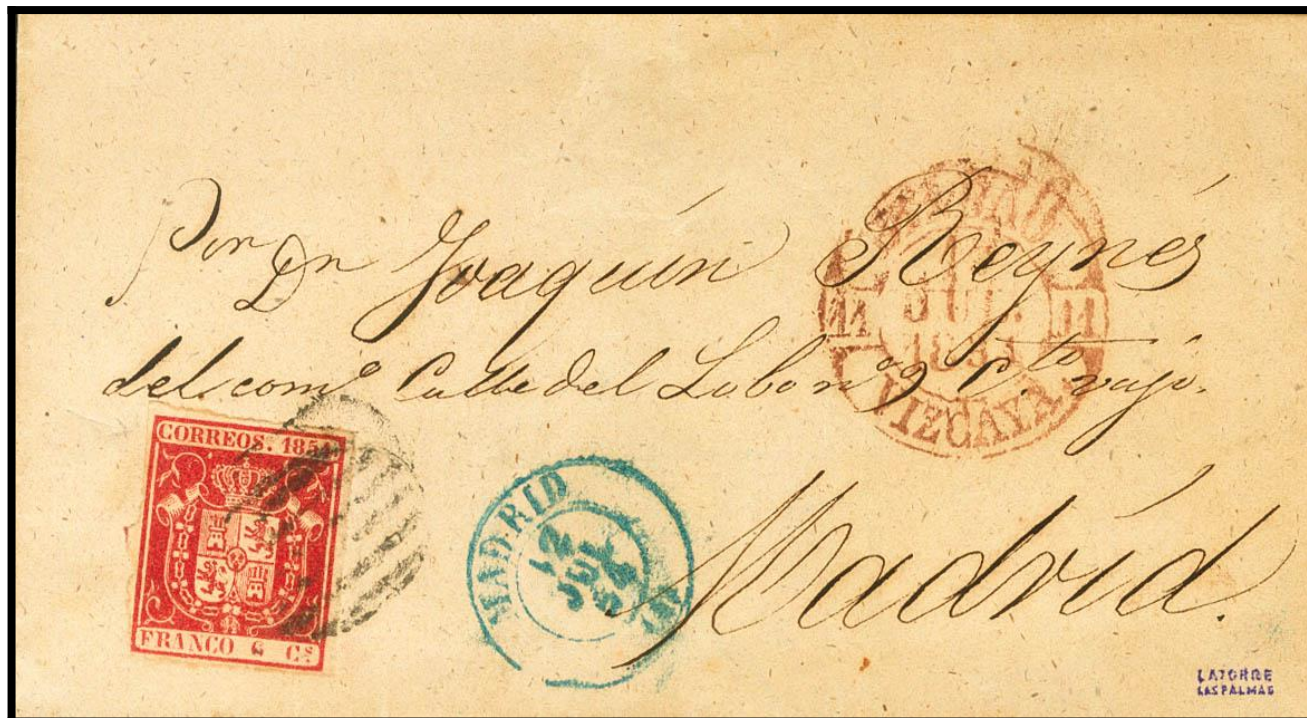 Por
Dn Joaquín Reynés
del comº Calle del Lobo nº 9 Cto vajo.
Madrid.
CORREOS. 1854
FRANCO 6 Cs
MADRID
12
JUL
54
JUL.
11 11
VIZCAYA
LATORRE
LAS PALMAS